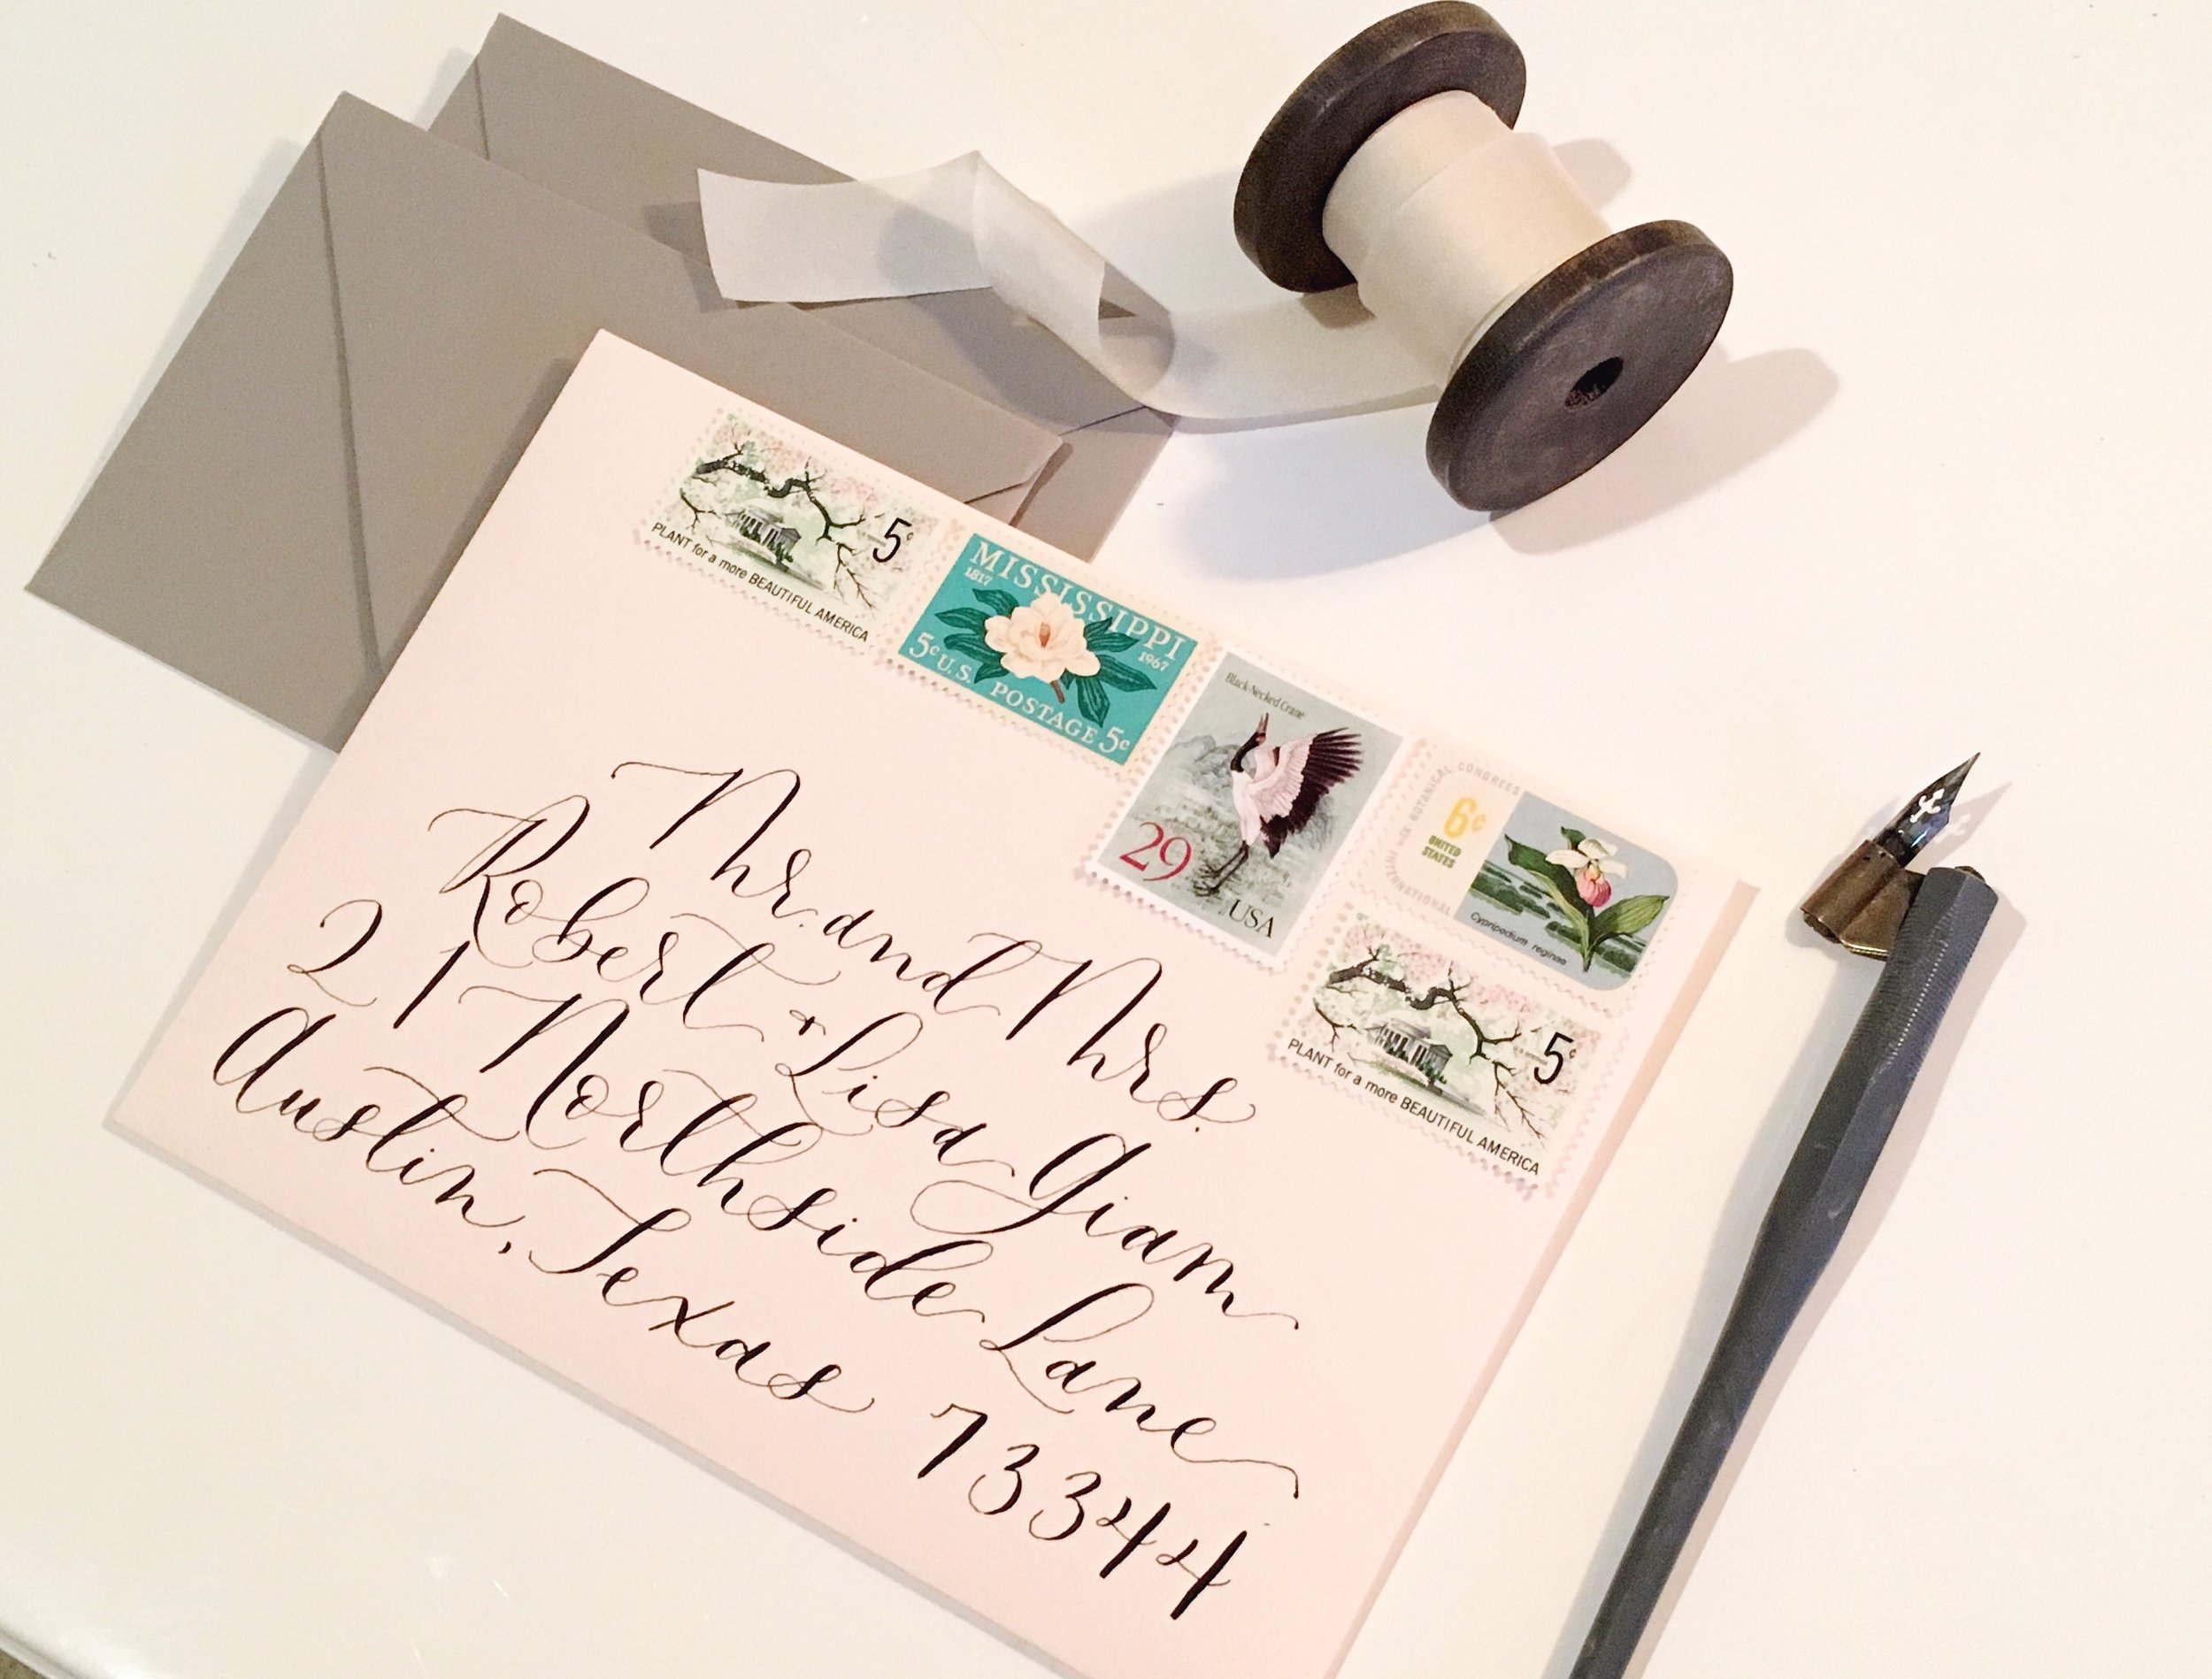 PLANT for a more BEAUTIFUL AMERICA
5¢
MISSISSIPPI
1817
1967
5¢ U.S. POSTAGE 5¢
Black-Necked Crane
29
USA
XI INTERNATIONAL BOTANICAL CONGRESS
6¢
UNITED
STATES
Cypripedium reginae
5¢
PLANT for a more BEAUTIFUL AMERICA
Mr. and Mrs.
Robert + Lisa Giam
21 Northside Lane
Austin, Texas 73344